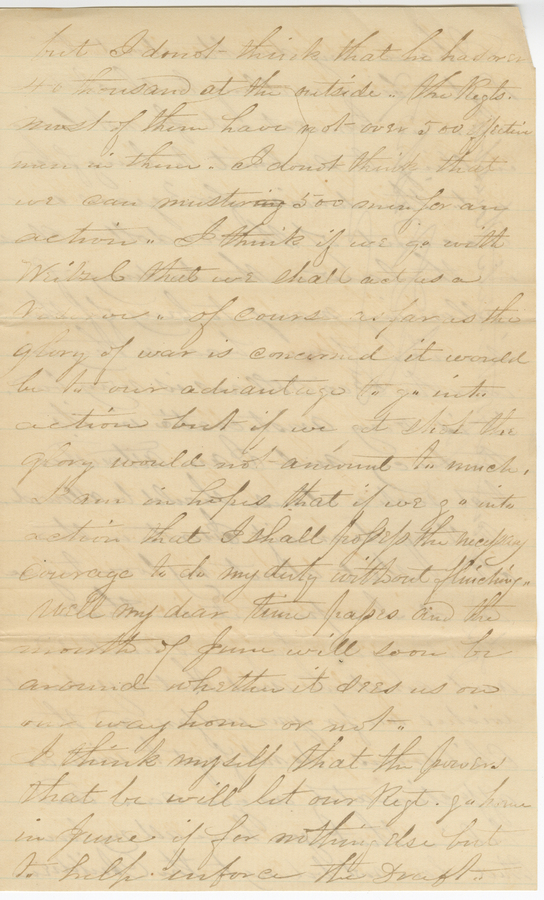 but I donot think that he has over
40 thousand at the outside „ the Regts.
most of them have not over 500 effective
men in them. I donot think that
we can mustering 500 men for any
action „ I think if we go with
Weitzel that we shall act as a
Reserve „ of course as far as the
glory of war is concerned it would
be to our advantage to go into
action but if we get shot the
glory would not amount to much.
I am in hopes that if we go into
action that I shall possess the necessary
courage to do my duty without flinching„
Well my dear time passes and the
month of June will soon be
around whether it sees us on
our way home or not„
I think myself that the powers
that be will let our Regt. go home
in June if for nothing else but
to help enforce the Draft„